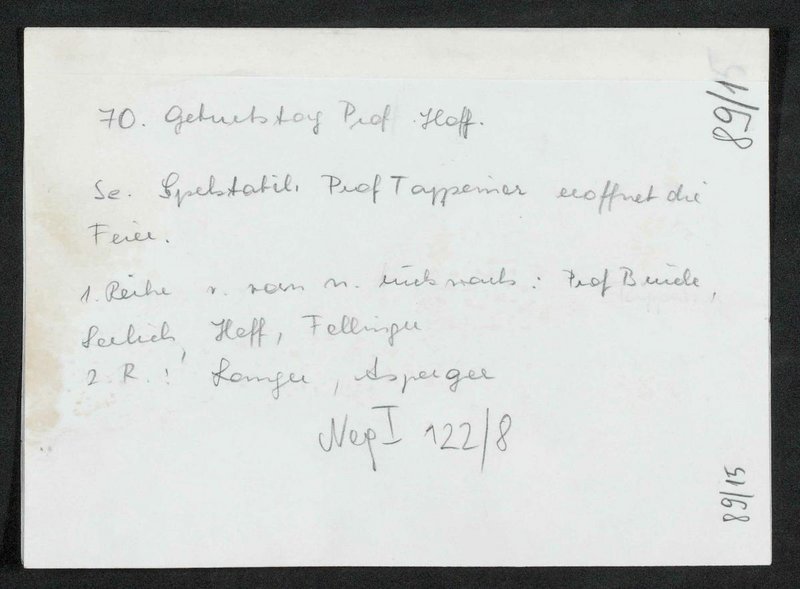 70. Geburtstag Prof. Hoff.
Se. Spektabil. Prof Tappeiner eröffnet die
Feier.
1. Reihe v. vorn n. rückwärts: Prof
Hoff, Fellinger
2. R.: Asperger
Neg I 122/8
89/15
89/15